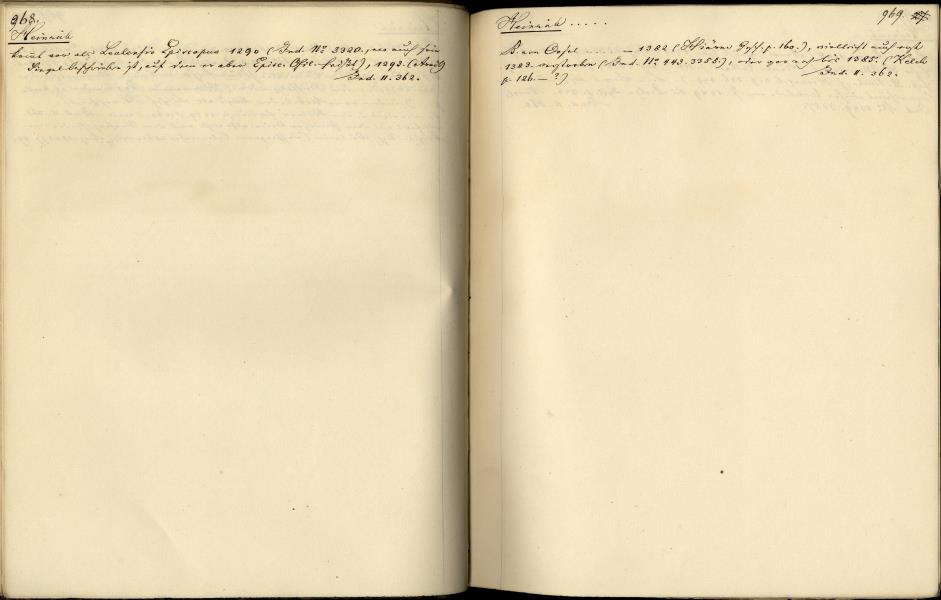 968.
Heinrich
kömt vor als Lealensis Episcopus 1290 (Ind. No 3320., wo auch sein
Siegel beschrieben ist, auf dem er aber Episc. Osil. heißt), 1293. (Arndt)
Ind. II. 362.
969.
Heinrich .....
B. von Oesel ..... — 1382 (Hiärns Gesch. p. 160.), vielleicht auch erst
1383 verstorben (Ind. No 443. 3355.), oder gar erst bis 1385. (Kelch
p. 126. — ?)
Ind. II. 362.